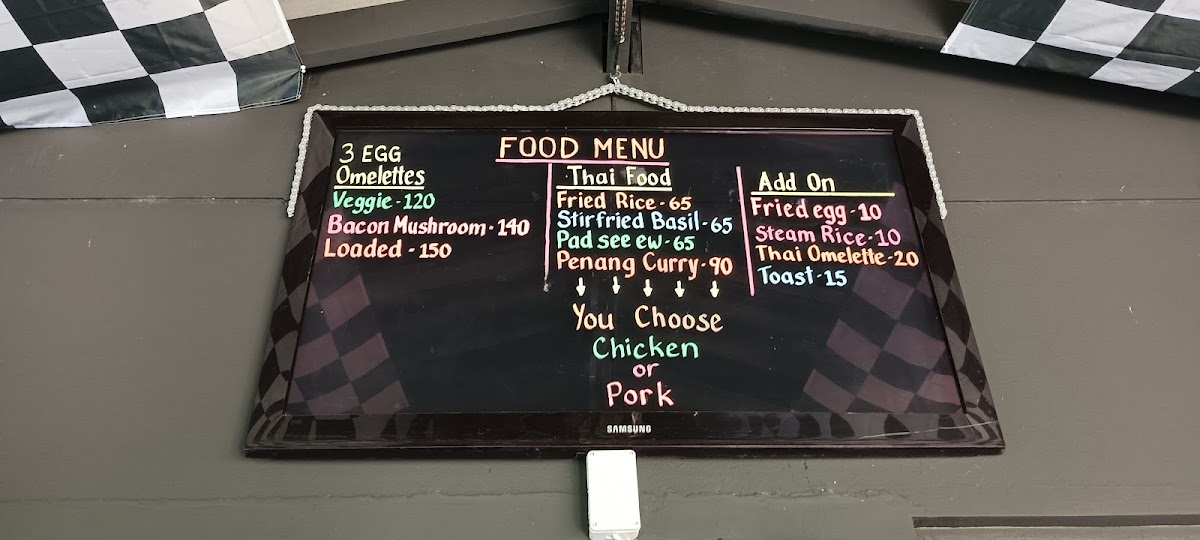 FOOD MENU
3 EGG
Omelettes
Veggie - 120
Bacon Mushroom - 140
Loaded - 150
Thai Food
Fried Rice - 65
Stirfried Basil - 65
Pad see ew - 65
Penang Curry - 90
You Choose
Chicken
or
Pork
Add On
Fried egg - 10
Steam Rice - 10
Thai Omelette - 20
Toast - 15
SAMSUNG